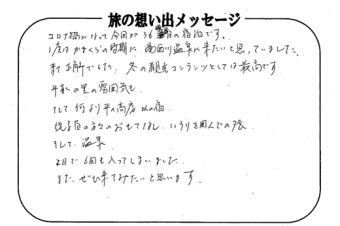 旅の想い出メッセージ
コロナ禍になって今回が36の宿泊です。
1度はかまくらの時期に湯西川温泉に来たいと思っていました。
来て正解でした。冬の観光コンテンツとしては最高です。
平家の里の雰囲気も
そして何より平の高房の宿
従業員の方々のおもてなし、いろりを囲んでの夜
そして、温泉
2日で6回も入ってしまいました。
また、ぜひ来てみたいと思います。